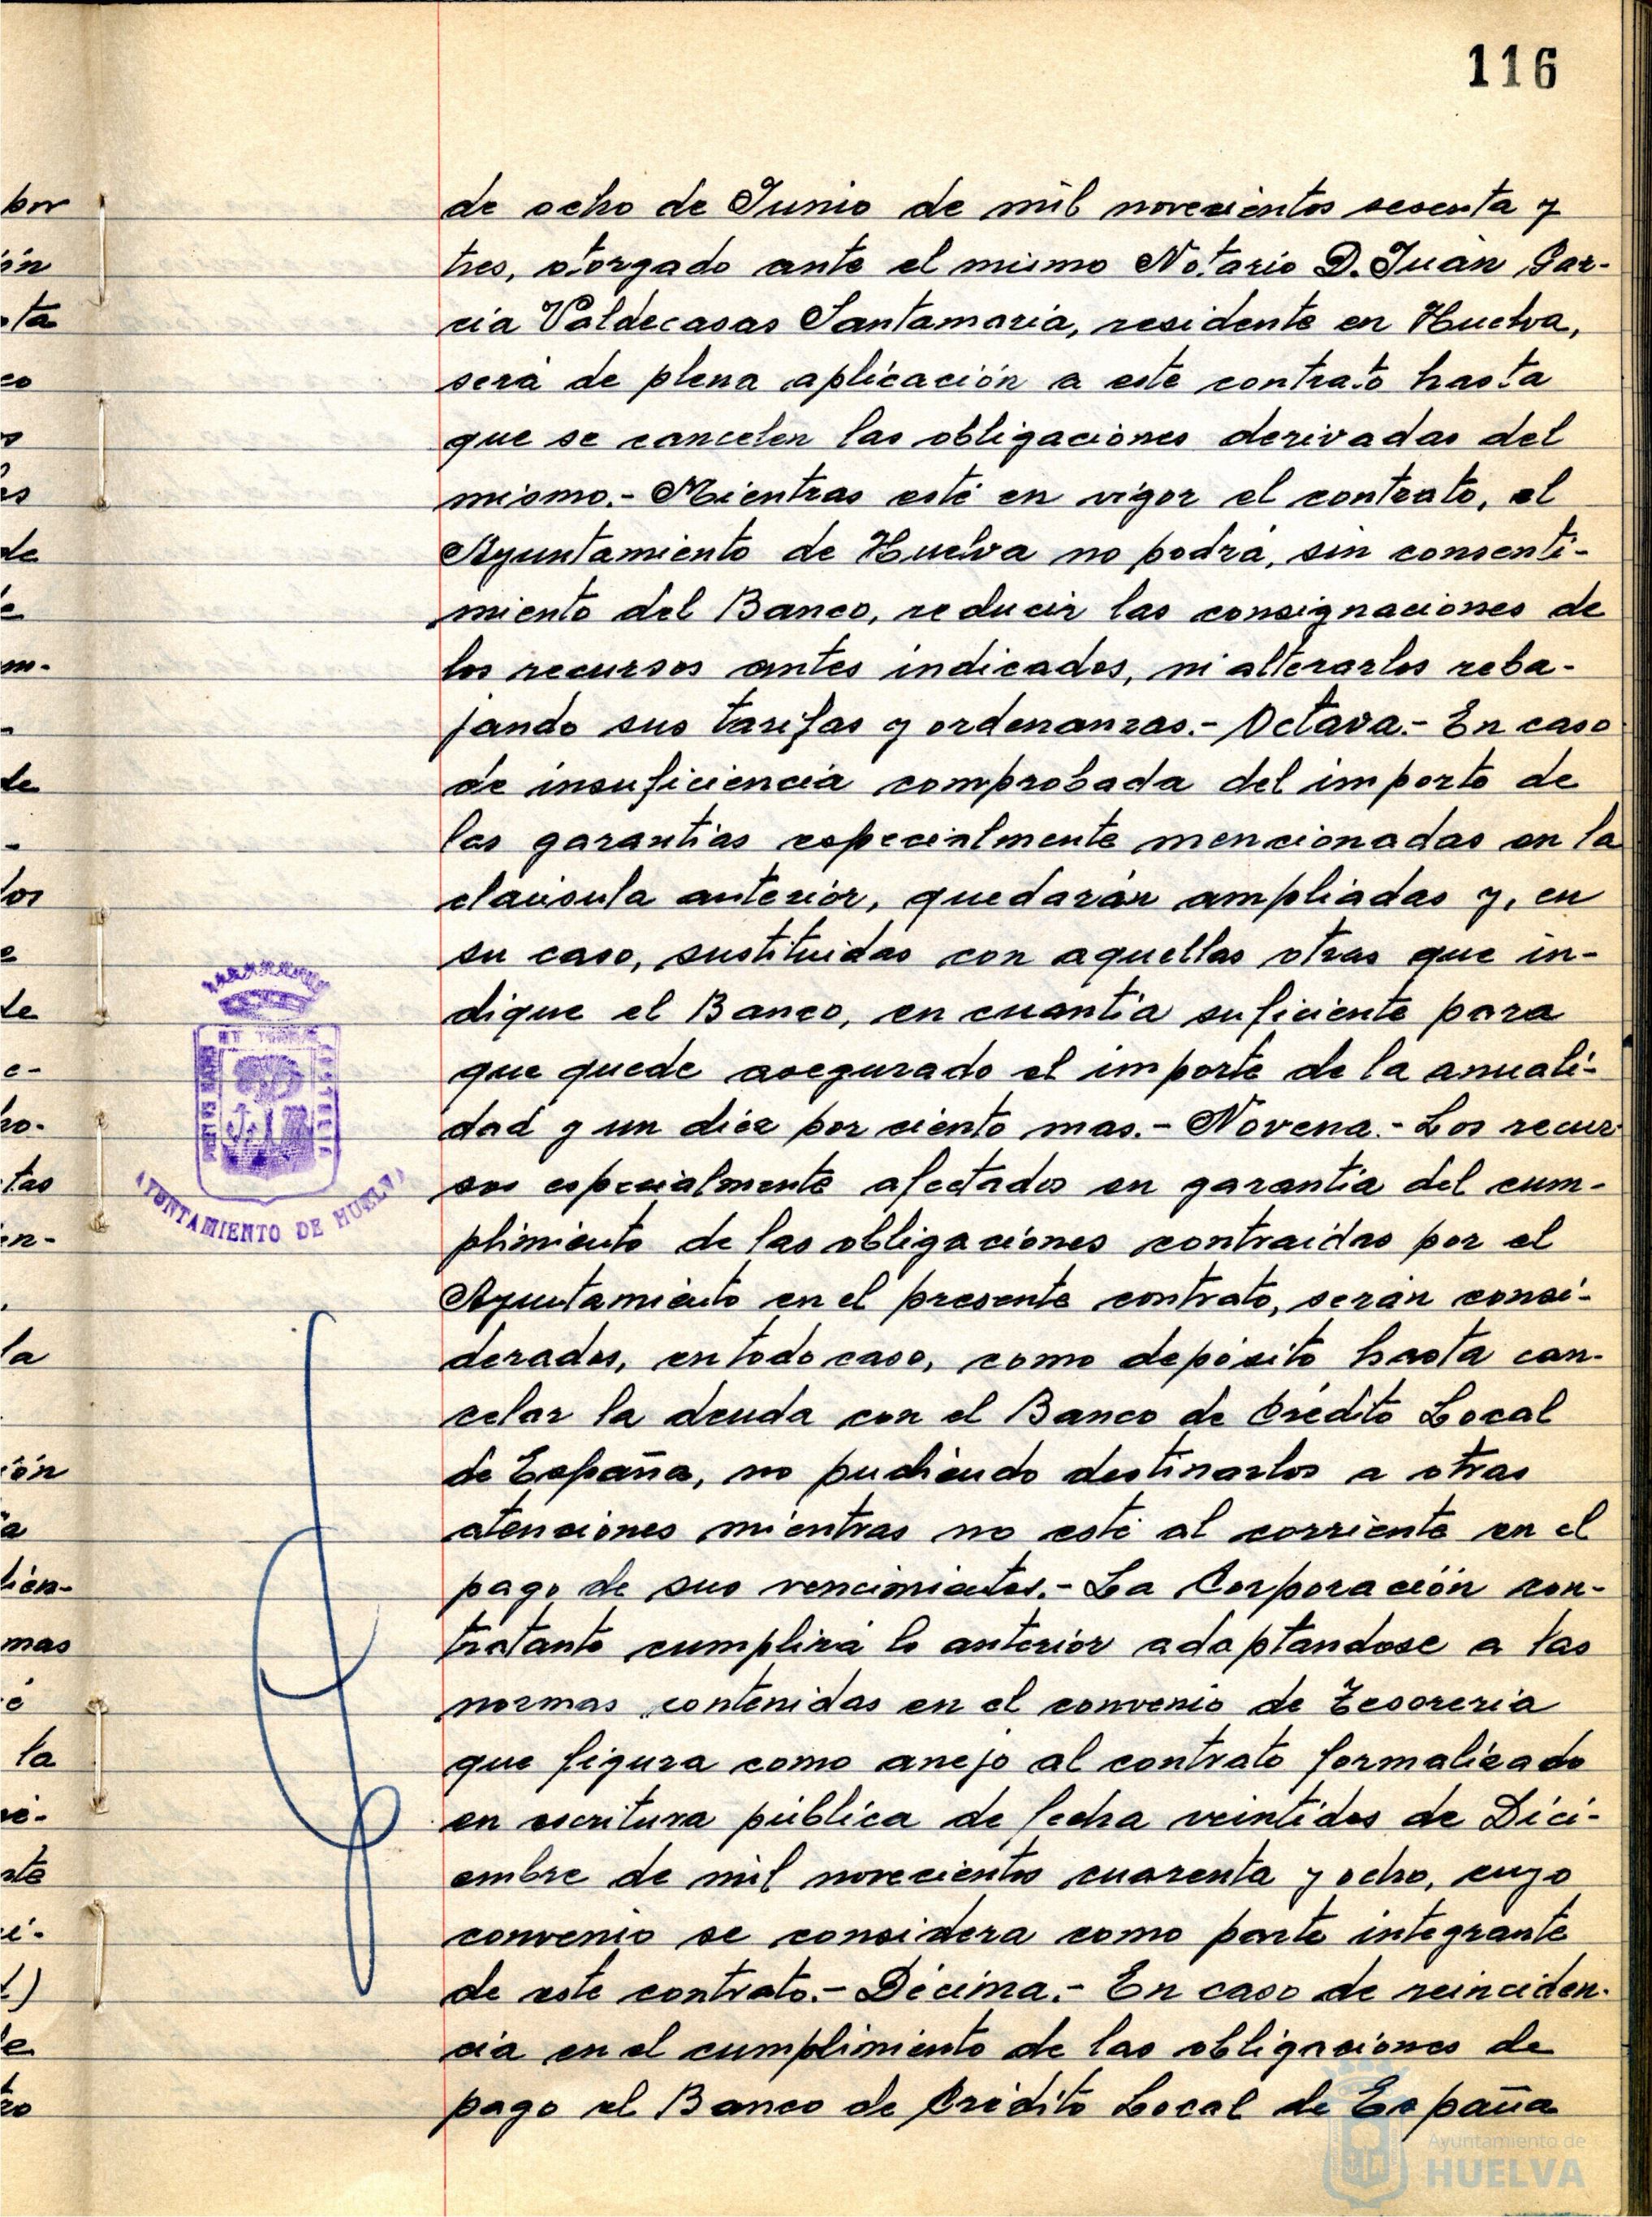 116
de ocho de Junio de mil novecientos sesenta y
tres, otorgado ante el mismo Notario D. Juan Gar-
cia Valdecasas Santamaria, residente en Huelva,
será de plena aplicación a este contrato hasta
que se cancelen las obligaciones derivadas del
mismo.- Mientras esté en vigor el contrato, el
Ayuntamiento de Huelva no podrá, sin consenti-
miento del Banco, reducir las consignaciones de
los recursos antes indicados, ni alterarlos reba-
jando sus tarifas y ordenanzas.- Octava.- En caso
de insuficiencia comprobada del importe de
las garantias especialmente mencionadas en la
claúsula anterior, quedarán ampliadas y, en
su caso, sustituidas con aquellas otras que in-
dique el Banco, en cuantia suficiente para
que quede asegurado el importe de la anuali-
dad y un diez por ciento mas.- Novena.- Los recur
sos especialmente afectados en garantia del cum-
plimiento de las obligaciones contraidas por el
Ayuntamiento en el presente contrato, serán consi-
derados, en todo caso, como depósito hasta can-
celar la deuda con el Banco de Crédito Local
de España, no pudiendo destinarlos a otras
atenciones mientras no esté al corriente en el
pago de sus vencimientos.- La Corporación con-
tratante cumplirá lo anterior adaptandose a las
normas contenidas en el convenio de Tesoreria
que figura como anejo al contrato formalizado
en escritura pública de fecha veintidos de Dici-
embre de mil novecientos cuarenta y ocho, cuyo
convenio se considera como parte integrante
de este contrato.- Décima.- En caso de reinciden-
cia en el cumplimiento de las obligaciones de
pago el Banco de Crédito Local de España
AYUNTAMIENTO DE HUELVA
Ayuntamiento de
HUELVA